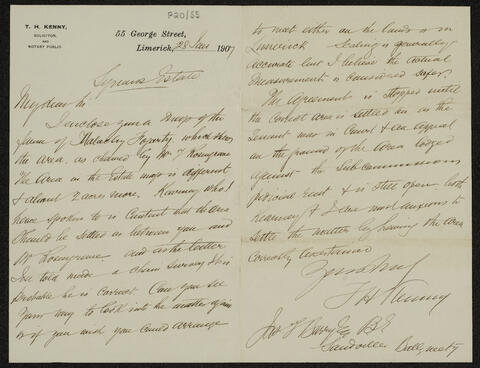 P20/55
T. H. KENNY,
SOLICITOR,
AND
NOTARY PUBLIC.
55 George Street,
Limerick, 28 Jany 1907
Estate
My dear Sir
I enclose you a map of the
farm of Malachy Fogarty which shows
the area, as claimed by Mr Rosengrave
The Area in the Estate map is different
& about 2 acres more. Kearney who I
have spoken to is content that the area
should be settled as between you and
Mr Rosengrave and as the latter
I am told made a chain survey it is
probable he is correct. Can you see
your way to look into the matter again
or if you wish you could arrange
to meet either on the lands or in
Limerick Scaling is generally
accurate but I believe the actual
measurement is considered safer.
The Agreement is stopped until
the correct area is settled on as the
Tenant was in Court & an appeal
on the ground of the area lodged
against the Sub Commissions
judicial rent & is still open both
Kearney & I are most anxious to
settle the matter by having the area
correctly ascertained
Yours truly
T H Kenny
Jno F Barry Esq B E
Sandville Ballyneety